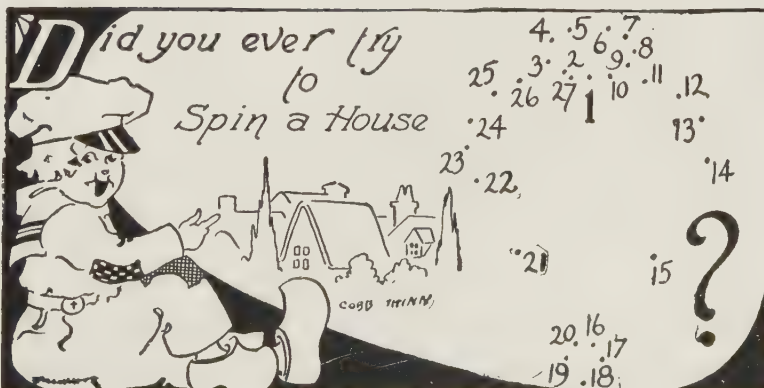 Did you ever try
to
Spin a House
4 5 7
6 8
3 2 9
25 26 27 1 10 11 12
24 13
23 22 14
21 15 ?
20 16 17
19 18
COBB